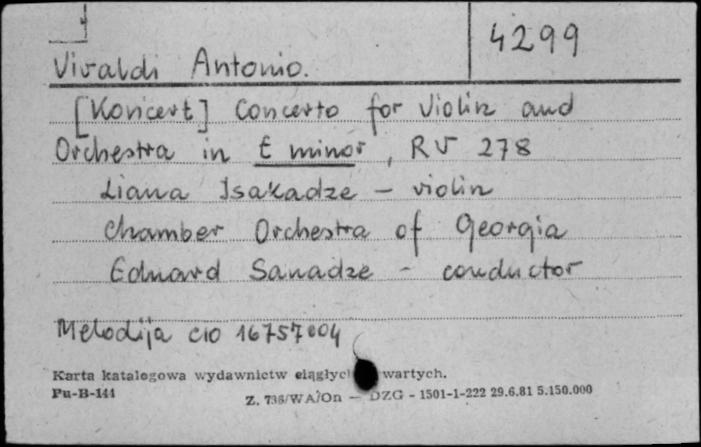 4299
Vivaldi Antonio.
[Koncert] Concerto for Violin and
Orchestra in E minor, RV 278
Liana Isakadze - violin
Chamber Orchestra of Georgia
Eduard Sanadze - conductor
Melodija C10 16757004
Karta katalogowa wydawnictw wartych.
Pu-B-144
Z. 736/WA/On - DZG - 1501-1-222 29.6.81 5.150.000